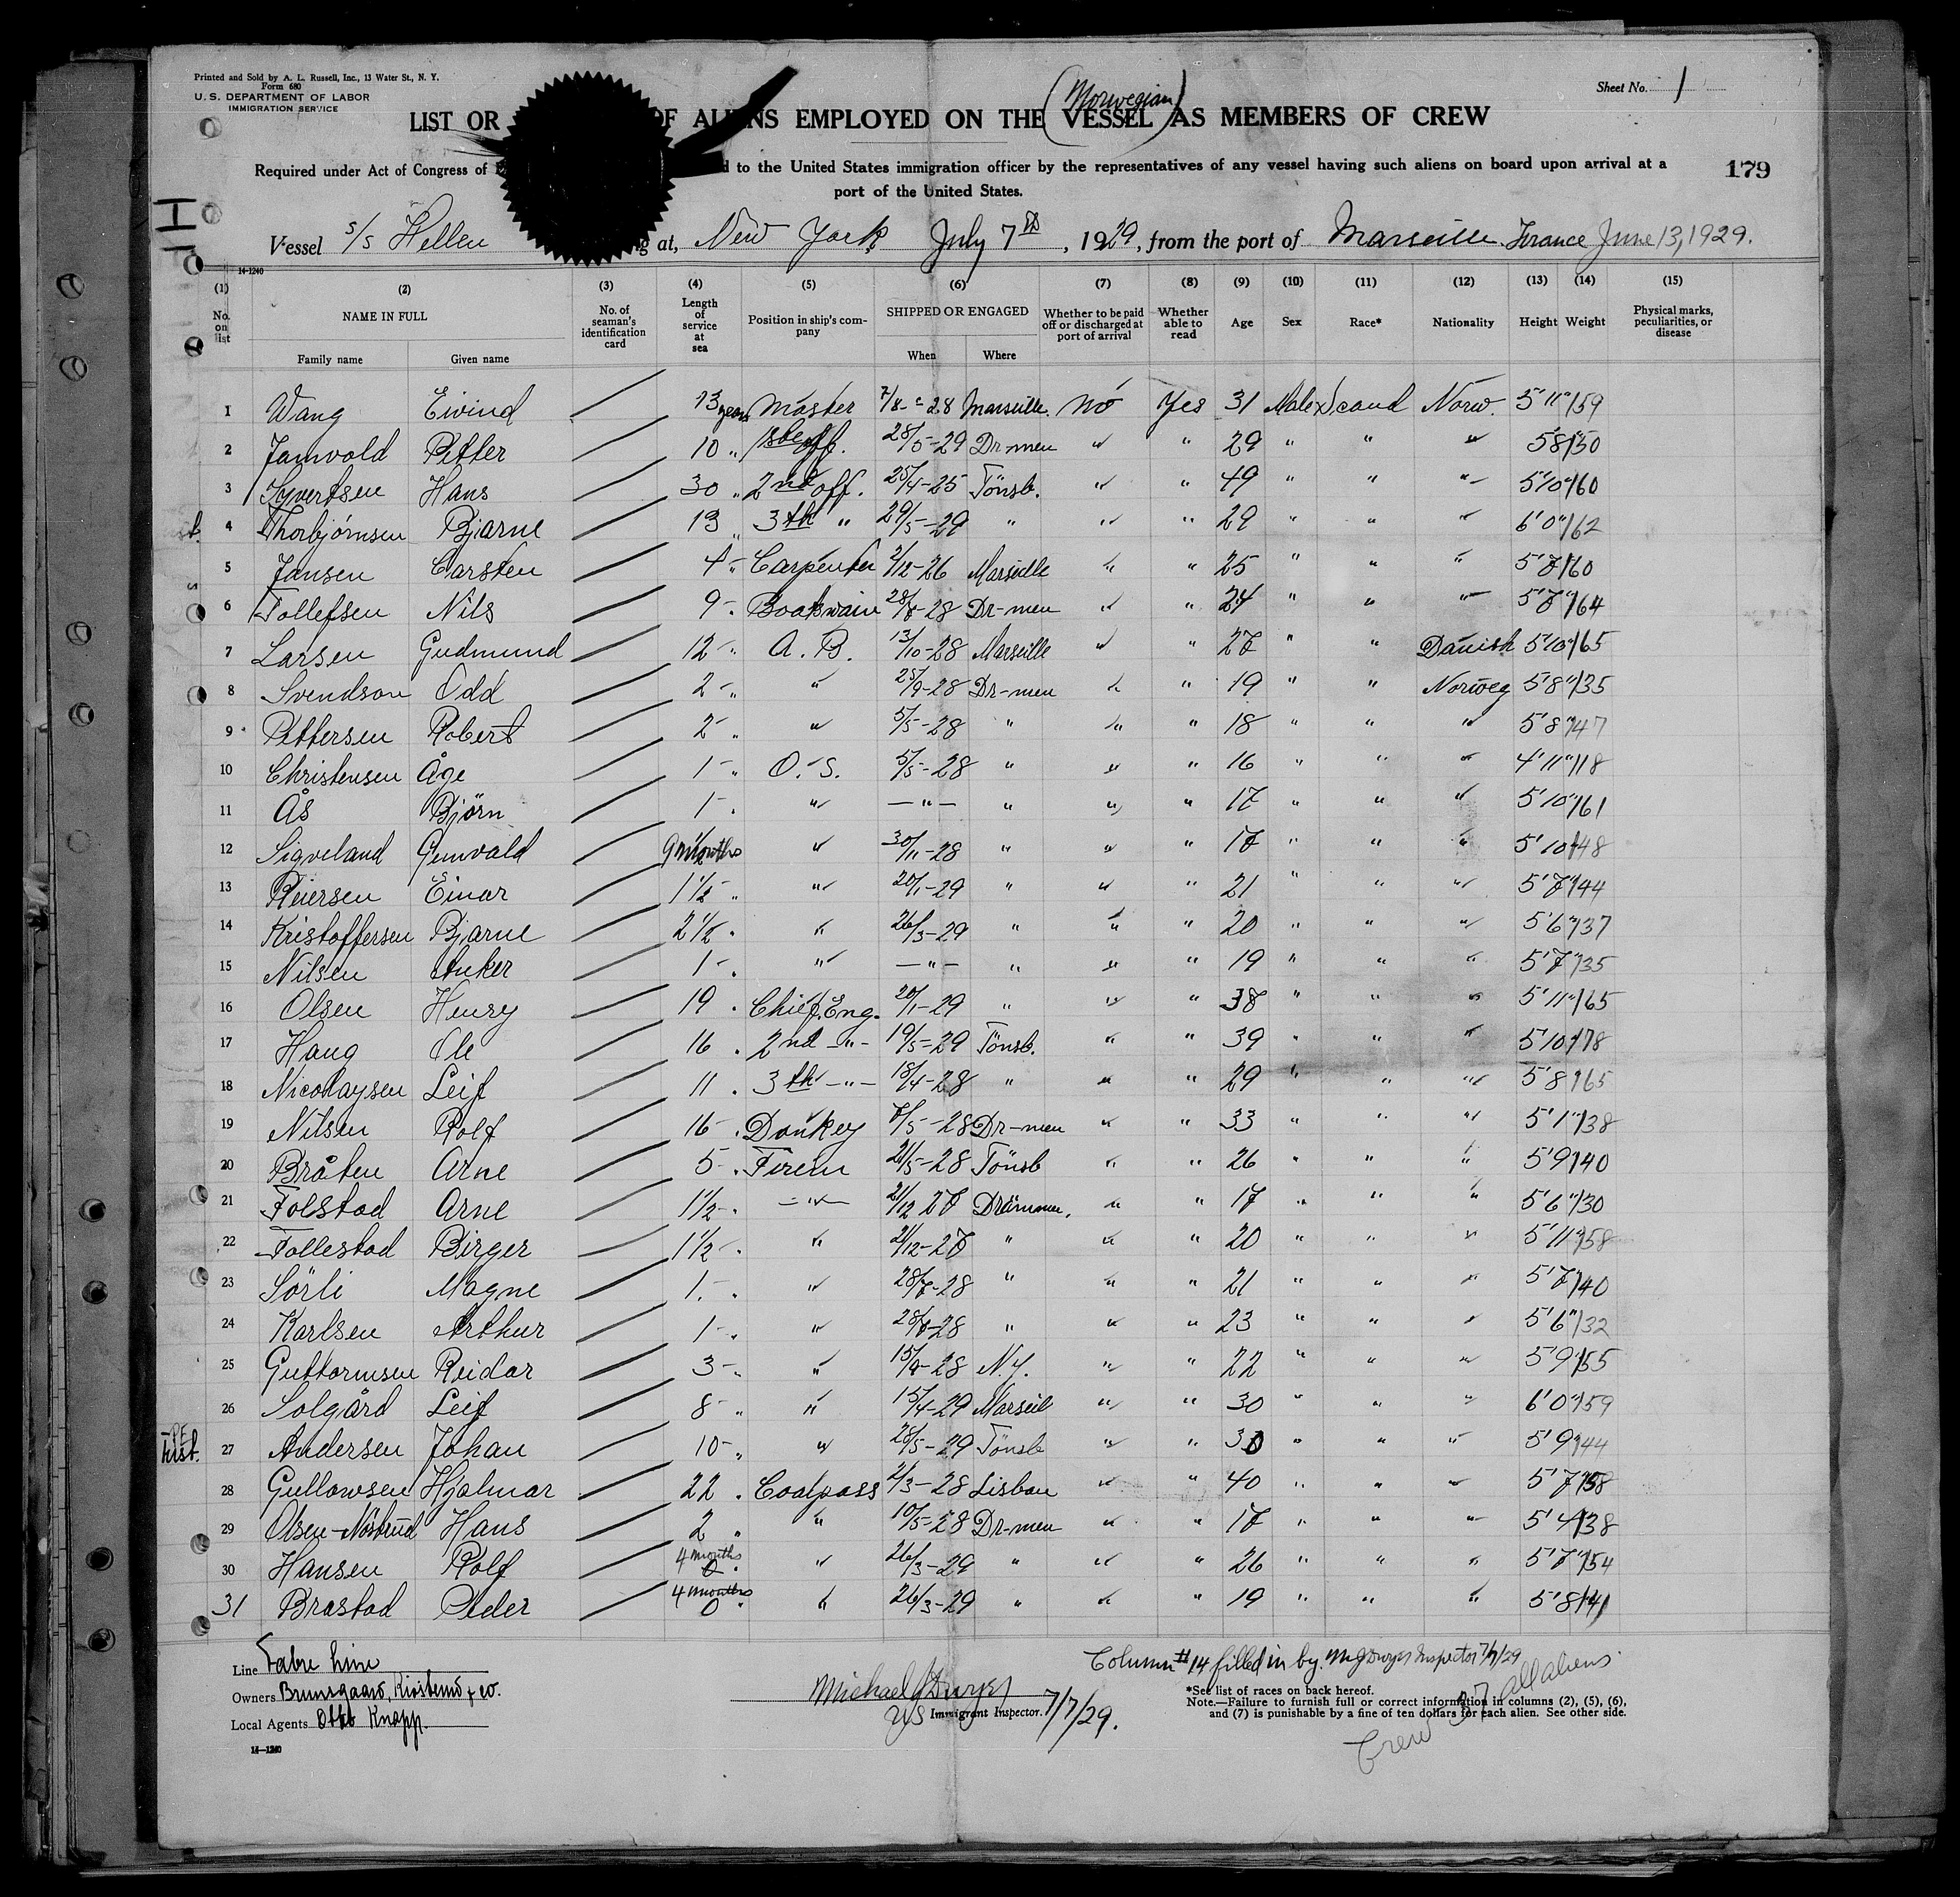 Printed and Sold by A. L. Russell, Inc., 13 Water St., N. Y.
Form 680
U. S. DEPARTMENT OF LABOR
IMMIGRATION SERVICE
Sheet No. 1
(Norwegian)
LIST OR OF ALIENS EMPLOYED ON THE VESSEL AS MEMBERS OF CREW
Required under Act of Congress of d to the United States immigration officer by the representatives of any vessel having such aliens on board upon arrival at a
port of the United States.
179
H
Vessel s/s Hellen g at, New York July 7th, 1929, from the port of Marseille France June 13, 1929.
14-1240
(1) (2) (3) (4) (5) (6) (7) (8) (9) (10) (11) (12) (13) (14) (15)
No. on list NAME IN FULL No. of seaman's identification card Length of service at sea Position in ship's company SHIPPED OR ENGAGED Whether to be paid off or discharged at port of arrival Whether able to read Age Sex Race* Nationality Height Weight Physical marks, peculiarities, or disease
Family name Given name When Where
1 Wang Eivind 13 years Master 7/8-28 Marseille. No Yes 31 Male Scand Norw. 5'11" 159
2 Jamvold Petter 10 " 1ste off. 28/5-29 Dr-men " " 29 " " " 5'8 150
3 Syvertsen Hans 30 " 2nd off. 25/4-25 Tönsb. " " 49 " " " 5'10" 160
4 Thorbjörnsen Bjarne 13 " 3th " 29/5-29 " " " 29 " " " 6'0" 162
5 Jansen Carsten 4 " Carpenter 2/12-26 Marseille " " 25 " " " 5'7 160
6 Tollefsen Nils 9 " Boatswain 28/8-28 Dr-men " " 24 " " " 5'7" 164
7 Larsen Gudmund 12 " A. B. 13/10-28 Marseille " " 27 " " Danish 5'10" 165
8 Svendson Odd 2 " " 25/9-28 Dr-men " " 19 " " Norweg 5'8" 135
9 Pettersen Robert 2 " " 5/5-28 " " " 18 " " " 5'8" 147
10 Christensen Åge 1 " O. S. 5/5-28 " " " 16 " " " 4'11" 118
11 Ås Björn 1 " " — " — " " " 17 " " " 5'10" 161
12 Sigveland Gunvald months " 30/11-28 " " " 17 " " " 5'10 148
13 Reiersen Einar 1 1/2 " " 20/1-29 " " " 21 " " " 5'7" 144
14 Kristoffersen Bjarne 2 1/2 " " 26/3-29 " " " 20 " " " 5'6" 137
15 Nilsen Anker 1 " " — " — " " " 19 " " " 5'7" 135
16 Olsen Henry 19 " Chief. Eng. 20/1-29 " " " 38 " " " 5'11" 165
17 Haug Ole 16 " 2nd — " — 19/5-29 Tönsb. " " 39 " " " 5'10" 178
18 Nicolaysen Leif 11 " 3th — " — 18/4-28 " " " 29 " " " 5'8 165
19 Nilsen Rolf 16 " Donkey /5-28 Dr-men " " 33 " " " 5'1" 138
20 Bråten Arne 5 " Firem 21/5-28 Tönsb " " 26 " " " 5'9 140
21 Folstad Arne 1 1/2 " — " — 21/12 27 Drammen. " " 17 " " " 5'6" 130
22 Follestad Birger 1 1/2 " " 21/12-27 " " " 20 " " " 5'11" 158
23 Sörli Magne 1 " " 28/7-28 " " " 21 " " " 5'7" 140
24 Karlsen Arthur 1 " " 28/8-28 " " " 23 " " " 5'6" 132
25 Guttormsen Reidar 3 " " 15/9-28 N.Y. " " 22 " " " 5'9" 155
26 Solgård Leif 8 " " 15/4-29 Marseil " " 30 " " " 6'0" 159
27 Andersen Johan 10 " " 28/5-29 Tönsb " " 30 " " " 5'9" 144
28 Gullowsen Hjalmar 22 " Coalpass 2/3-28 Lisbon " " 40 " " " 5'7" 158
29 Olsen-Nösterud Hans 2 " " 10/5-28 Dr-men " " 17 " " " 5'4" 138
30 Hansen Rolf 4 months 0 " " 26/3-29 " " " 26 " " " 5'7" 154
31 Brastad Peder 4 months 0 " " 26/3-29 " " " 19 " " " 5'8 141
Line Fabre Line
Owners Brunsgaard, Kiösterud & co.
Local Agents Otto Knapp.
14—1240
Michael J Dwyer
US Immigrant Inspector. 7/7/29.
Column #14 filled in by. M J Dwyer Inspector 7/7/29
*See list of races on back hereof.
Note.—Failure to furnish full or correct information in columns (2), (5), (6),
and (7) is punishable by a fine of ten dollars for each alien. See other side.
Crew 37 all aliens.